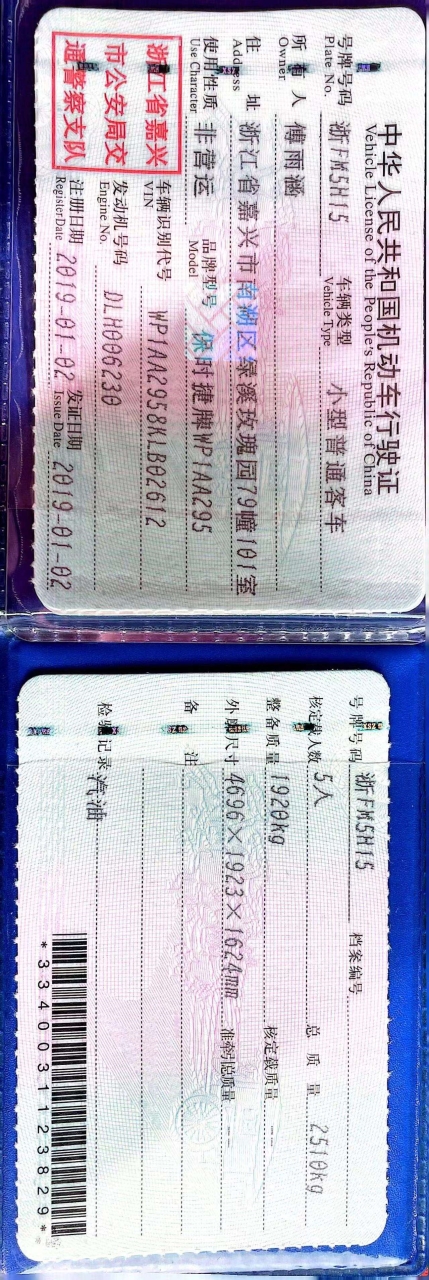 中华人民共和国机动车行驶证
Vehicle License of the People's Republic of China
号牌号码 浙FM5H15 车辆类型 小型普通客车
Plate No. Vehicle Type
所有人 傅雨涵
Owner
住 址 浙江省嘉兴市南湖区绿溪玫瑰园79幢101室
Address
使用性质 非营运 品牌型号 保时捷牌WP1AA295
Use Character Model
浙江省嘉兴
市公安局交
通警察支队
车辆识别代号 WP1AA2958KLB02612
VIN
发动机号码 DLH006230
Engine No.
注册日期 2019-01-02 发证日期 2019-01-02
Register Date Issue Date
号牌号码 浙FM5H15 档案编号
核定载人数 5人 总 质 量 2510kg
整备质量 1920kg 核定载质量 --
外廓尺寸 4696×1923×1624mm 准牵引总质量 --
备 注
检验记录 汽油
*3340031123829*